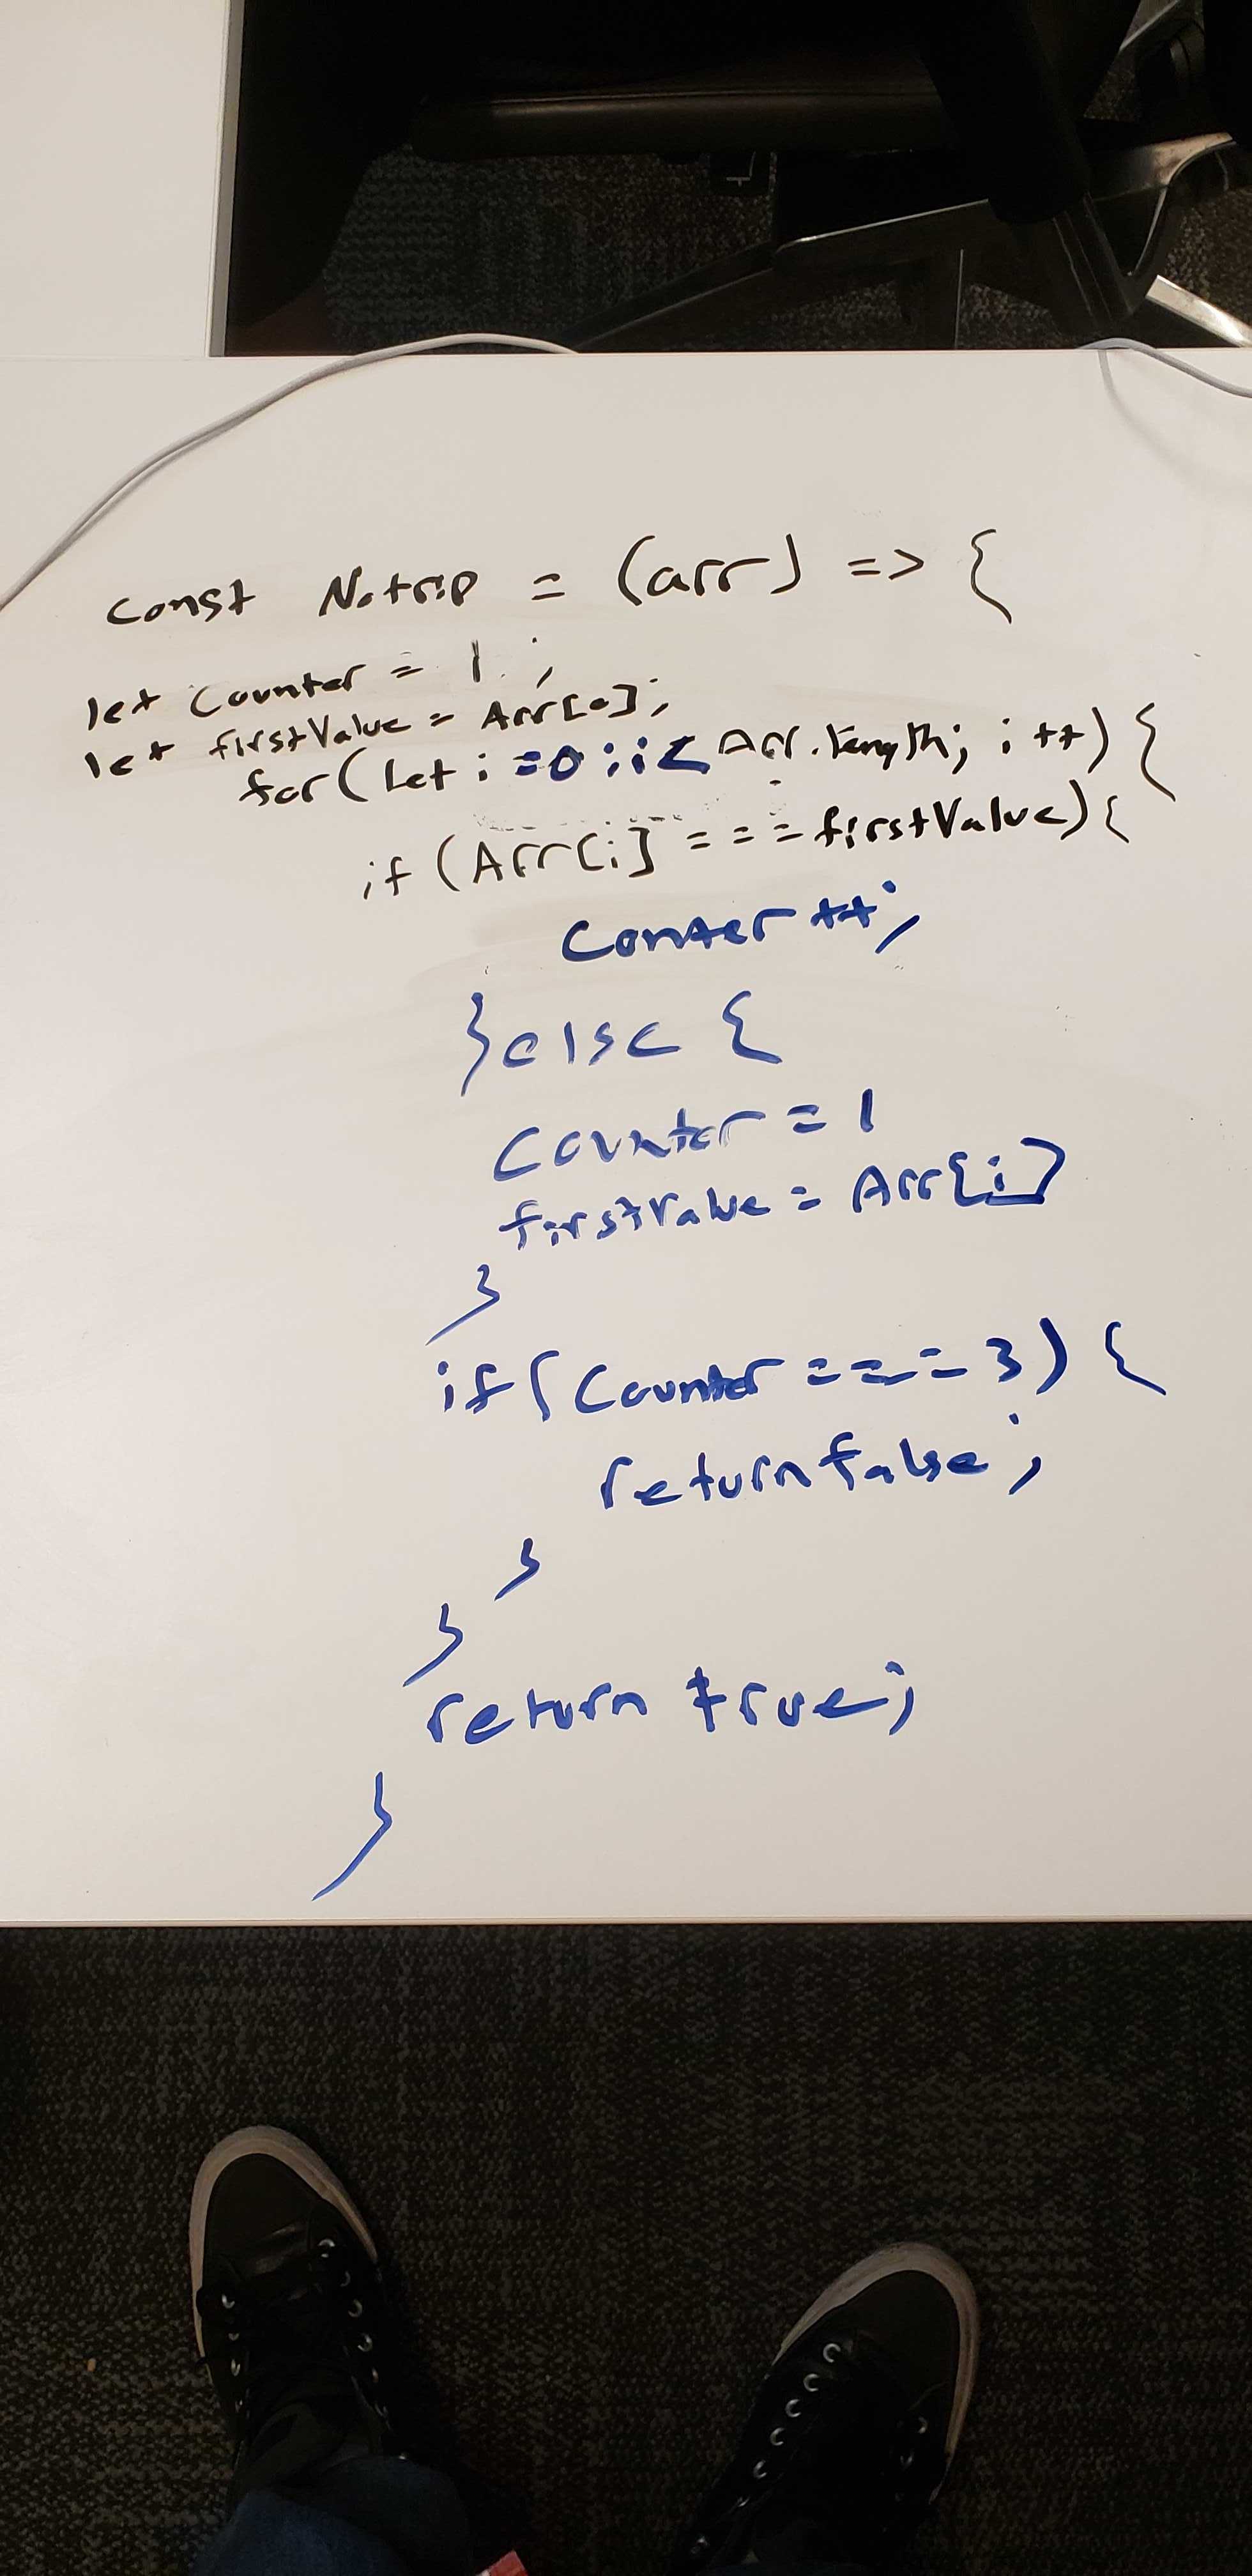 const Notrip = (arr) => {
let Counter = 1;
let firstValue = Arr[0];
for(Let i =0;i< Arr.length; i++) {
if (Arr[i] === firstValue){
Conter++;
}else {
Counter = 1
firstValue = Arr[i]
}
if(Counter === 3) {
return false;
}
}
return true;
}